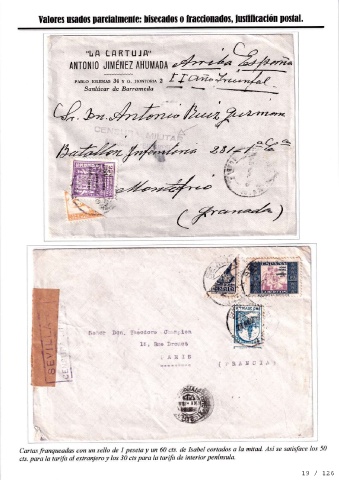 Valores usados parcialmente: bisecados o fraccionados, justificación postal.
"LA CARTUJA"
ANTONIO JIMÉNEZ AHUMADA
PABLO IGLESIAS 36 Y G. HONTORIA 2
Sanlúcar de Barrameda
Arriba España
II Año Triunfal
Sr. Dn. Antonio Ruiz Guzman
CENSURA MILITAR
Batallon Infanteria
Montefrio
(Granada)
SEVILLA
Señor Don. Theodore Champion
13, Rue Drouot
PARIS
(FRANCIA)
Cartas franqueadas con un sello de 1 peseta y un 60 cts. de Isabel cortados a la mitad. Así se satisface los 50
cts. para la tarifa al extranjero y los 30 cts para la tarifa de interior península.
19 / 126